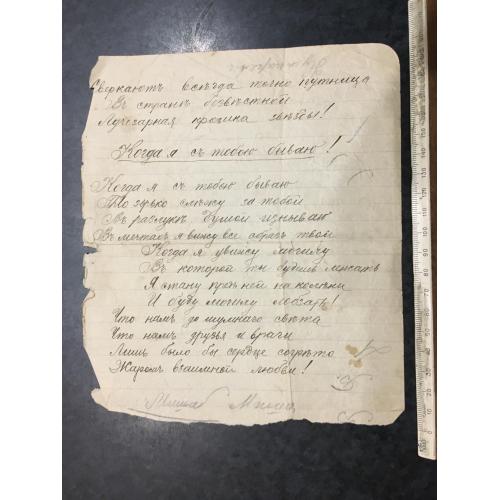 Сверкаютъ всегда точно путница
Въ странѣ безвѣстной
Лучезарная крошка звѣзды!
Когда я съ тобою бываю!
Когда я съ тобою бываю
То зорко слежу за тобой
Въ разлукѣ душой изнываю
Въ мечтахъ я вижу все образъ твой
Когда я увижу могилу
Въ которой ты будишь лежать
Я стану предъ ней на колѣни
И буду могилу лобзать!
Что намъ до шумнаго свѣта
Что намъ друзья и враги
Лишь было бы сердце согрѣто
Жаромъ взаимной любви!